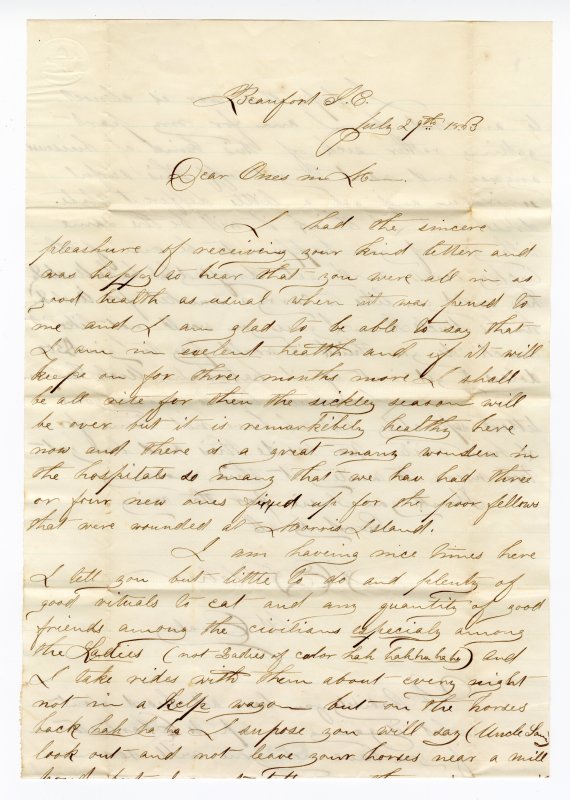 Beaufort S. C.
July 29th 1863
Dear Ones in
I had the sincere
pleashure of receiving your kind letter and
was happy to hear that you were all in as
good health as usual when it was pened to
me and I am glad to be able to say that
I am in exelent health and if it will
keepe on for three months more I shall
be all rise for then the sickley season will
be over but it is remarkibely healthy here
now and there is a great many wounden in
the hospitals so many that we hav had three
or four new ones fixed up for the poor fellows
that were wounded at Morris Island.
I am haveing nice times here
I tell you but little to do and plenty of
good vituals to eat and any quantity of good
friends among the civilians especialy among
the Ladies (not Ladies of color hah hah ha ha) and
I take rides with them about every night
not in a kelp wagon but on the horses
back hah ha ha I supose you will say (Uncle Sam)
look out and not leave your horses near a mill